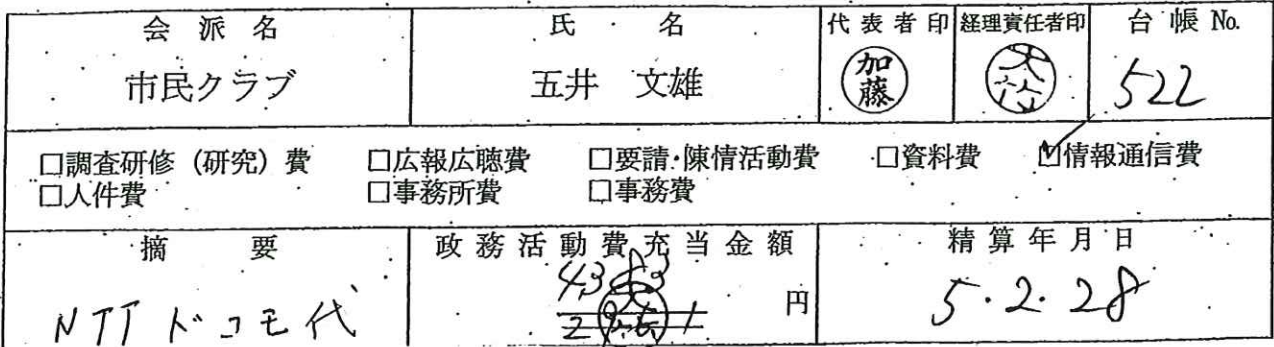 会派名 氏名 代表者印 経理責任者印 台帳No.
市民クラブ 五井 文雄 加藤 522
□調査研修(研究)費 □広報広聴費 □要請・陳情活動費 □資料費 ☑情報通信費
□人件費 □事務所費 □事務費
摘要 政務活動費充当金額 精算年月日
NTTドコモ代 円 5.2.28